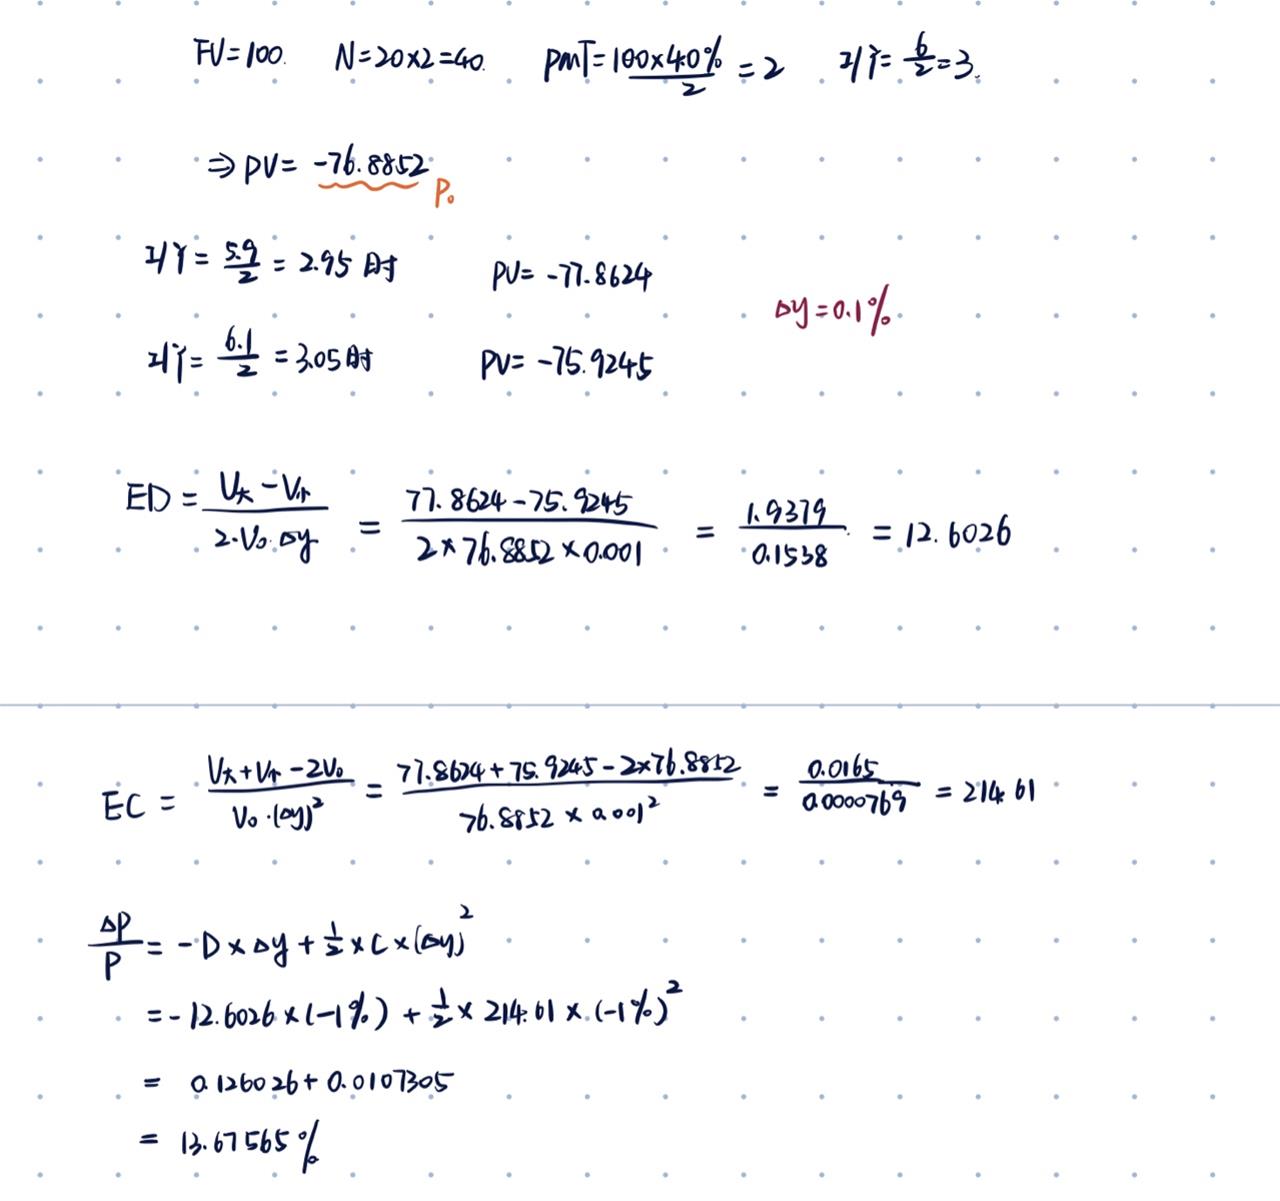 FV=100. N=20×2=40. PMT=\frac{100×4.0%}{2}=2 I/Y=\frac{6}{2}=3.
⇒PV=-76.8852 P₀
I/Y=\frac{5.9}{2}=2.95时 PV=-77.8624
Δy=0.1%.
I/Y=\frac{6.1}{2}=3.05时 PV=-75.9245
ED=\frac{V_大-V_小}{2·V₀·Δy}=\frac{77.8624-75.9245}{2×76.8852×0.001}=\frac{1.9379}{0.1538}=12.6026
EC=\frac{V_大+V_小-2V₀}{V₀·(Δy)²}=\frac{77.8624+75.9245-2×76.8852}{76.8852×0.001²}=\frac{0.0165}{0.0000769}=214.61
\frac{ΔP}{P}=-D×Δy+\frac{1}{2}×C×(Δy)²
=-12.6026×(-1%)+\frac{1}{2}×214.61×(-1%)²
=0.126026+0.0107305
=13.67565%